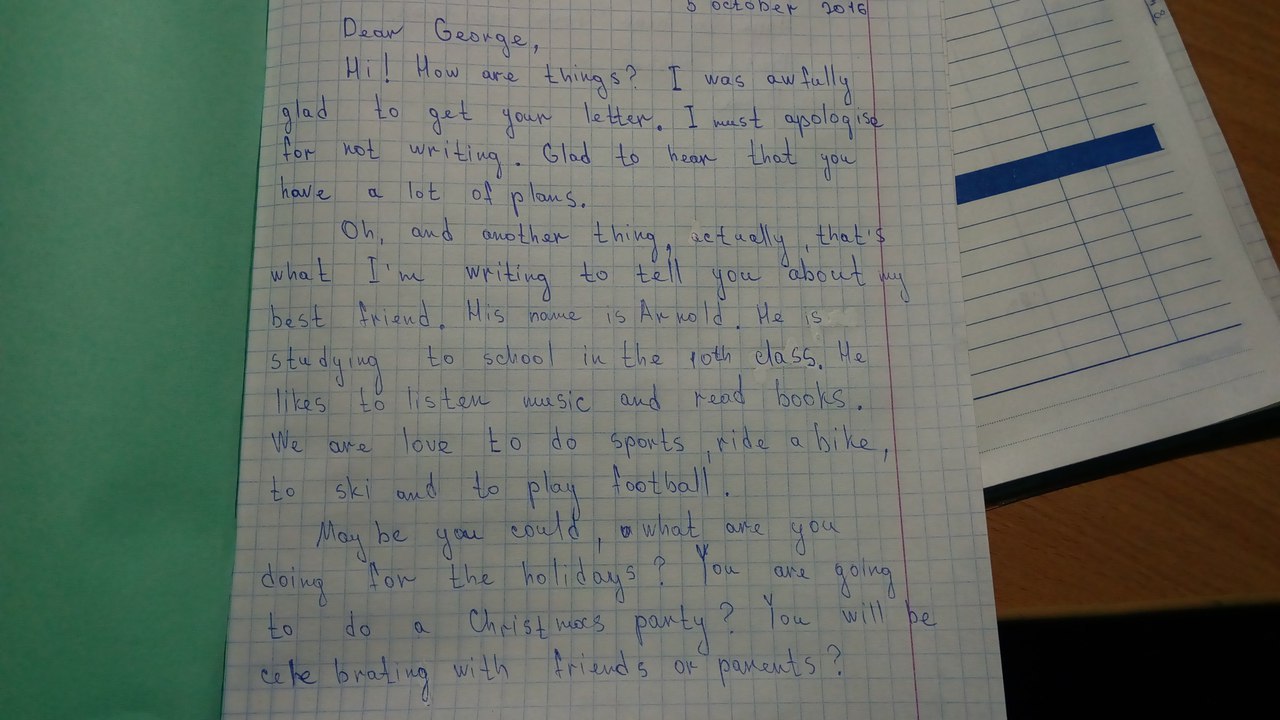 5 october 2016
Dear George,
Hi! How are things? I was awfully
glad to get your letter. I must apologise
for not writing. Glad to hear that you
have a lot of plans.
Oh, and another thing, actually, that's
what I'm writing to tell you about my
best friend. His name is Arnold. He is
studying to school in the 10th class. He
likes to listen music and read books.
We are love to do sports, ride a bike,
to ski and to play football.
May be you could, what are you
doing for the holidays? You are going
to do a Christmas party? You will be
celebrating with friends or parents?